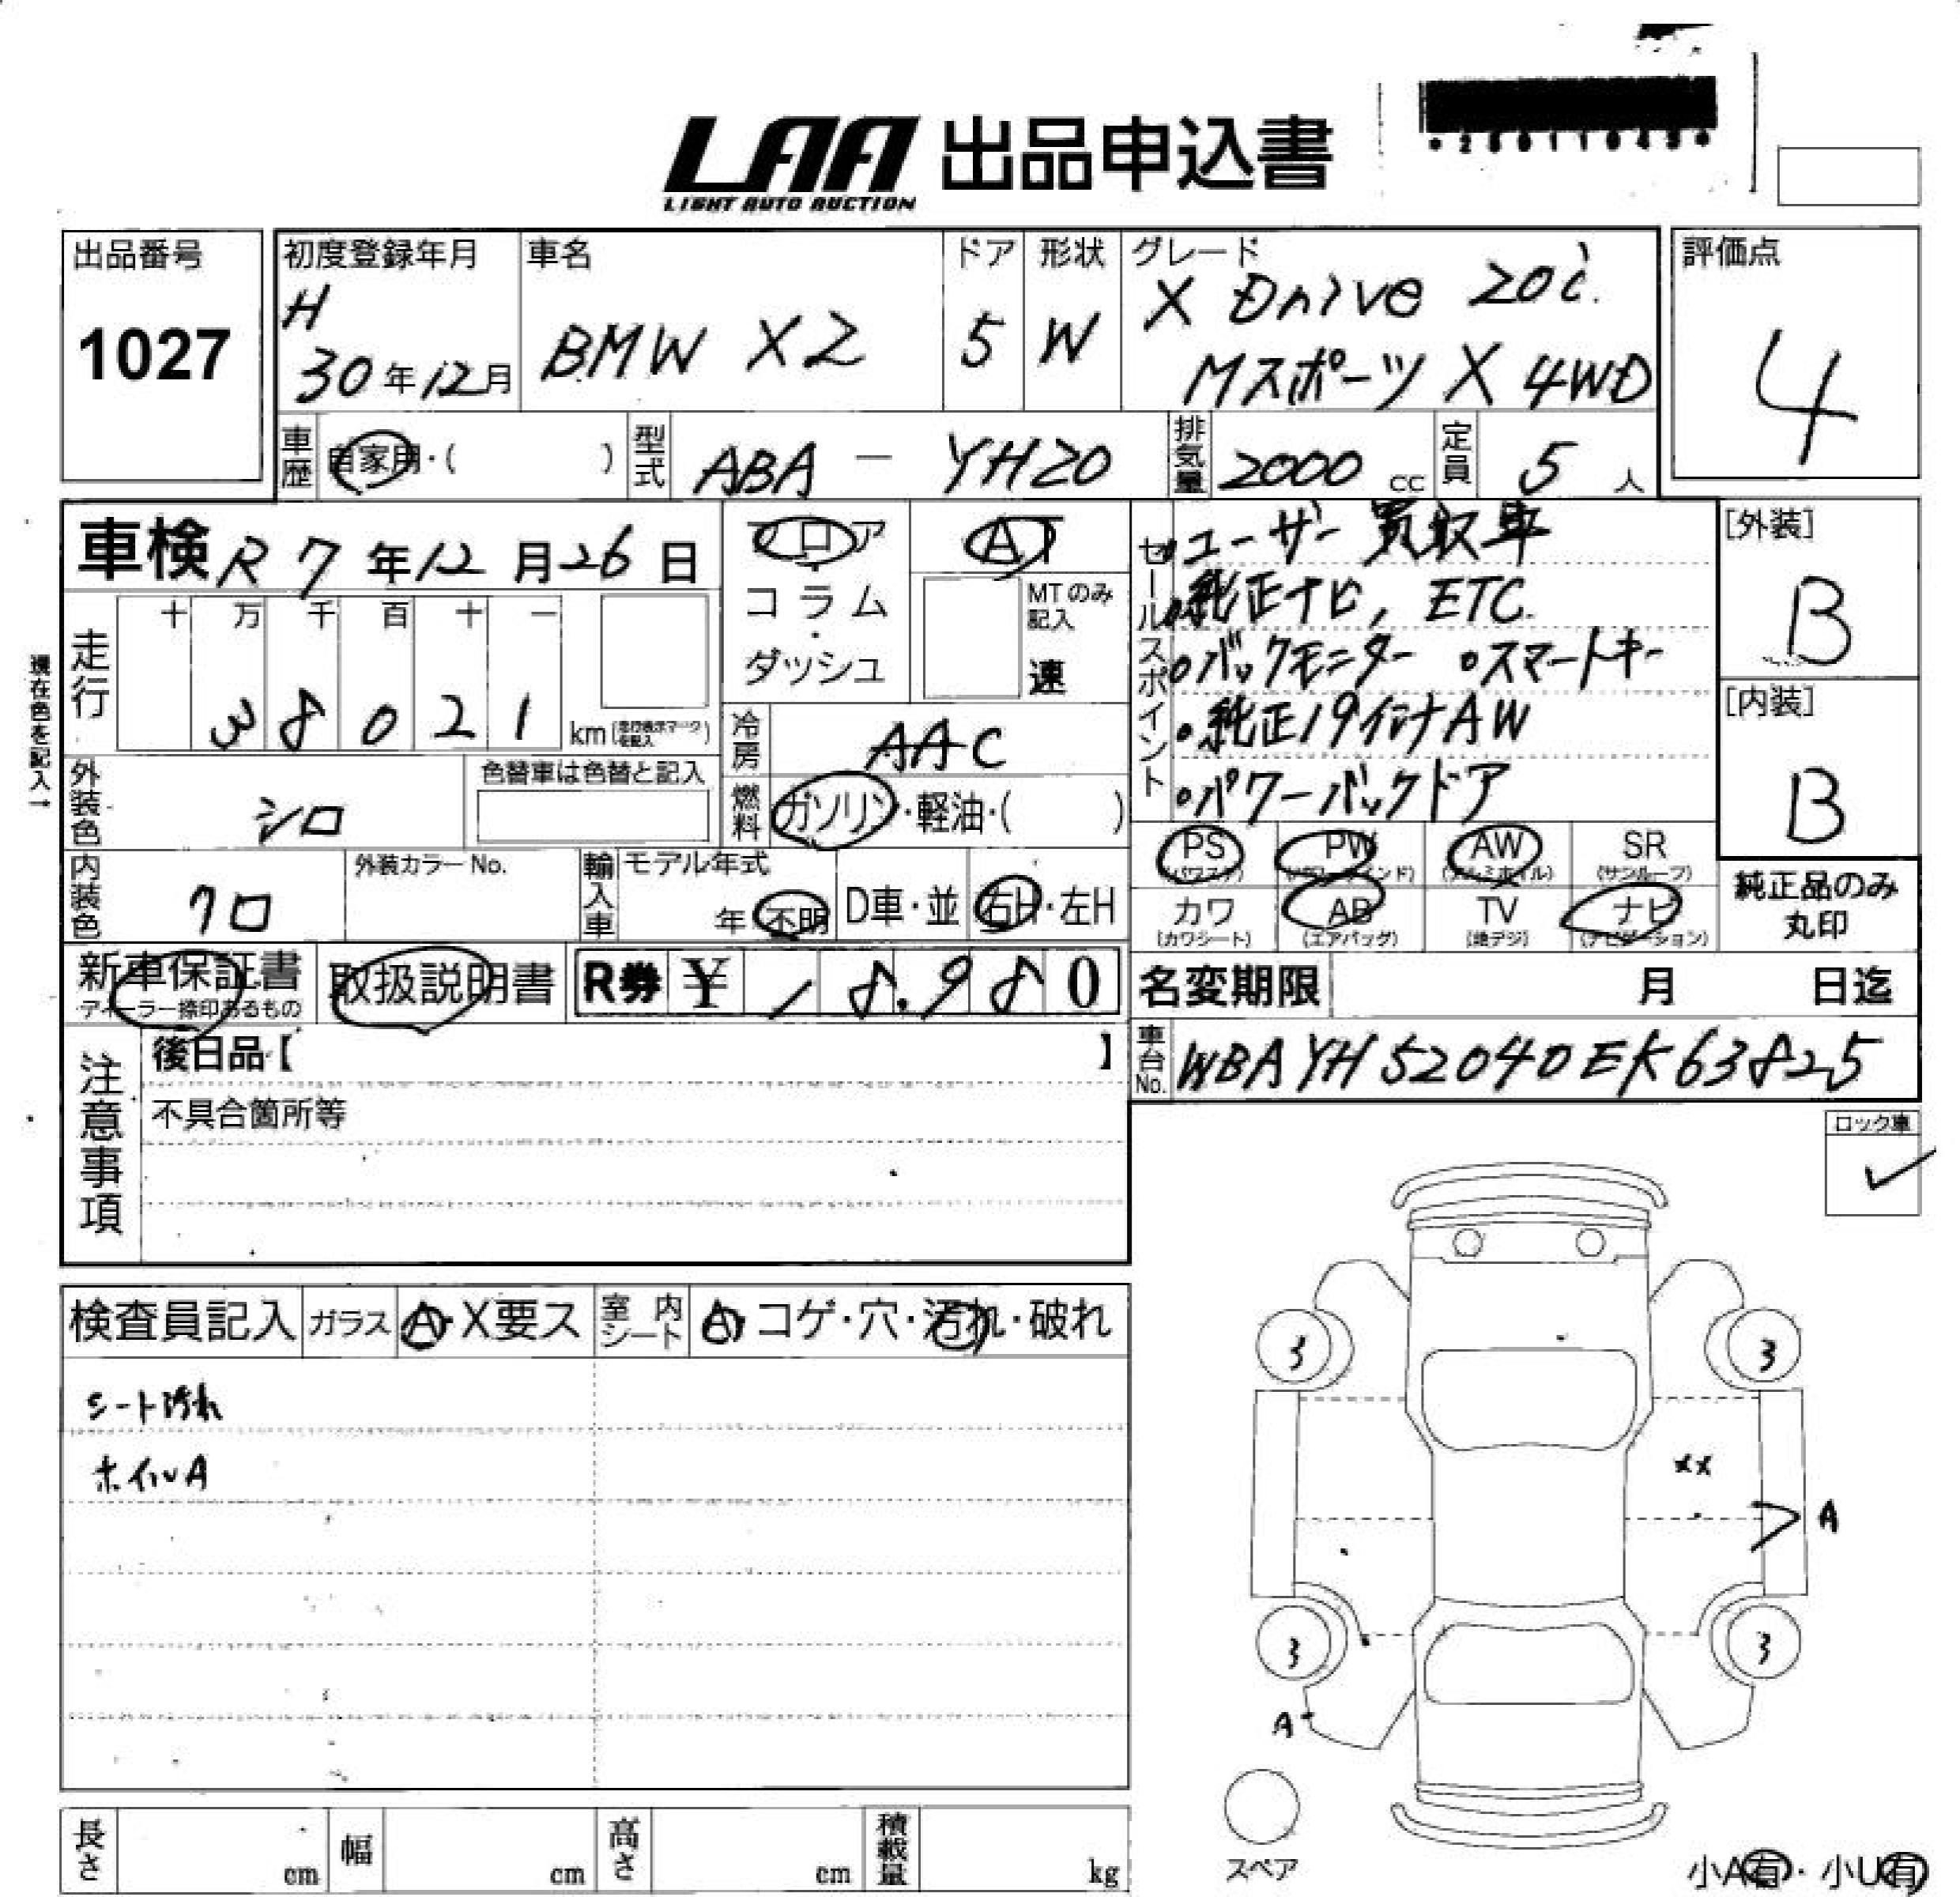 LAA 出品申込書
LIGHT AUTO AUCTION
出品番号
1027
初度登録年月
H
30年12月
車名
BMW X2
ドア
5
形状
W
グレード
X Drive 20i.
Mスポーツ X 4WD
評価点
4
車歴
自家用・( )
型式
ABA - YH20
排気量
2000 cc
定員
5 人
車検 R 7 年 12 月 26 日
フロア
コラム
・
ダッシュ
AT
MTのみ
記入
速
走行
十 万 千 百 十 一
3 8 0 2 1 km
現在色を記入→
冷房
AAC
外装色
シロ
色替車は色替と記入
燃料
ガソリン・軽油・( )
内装色
クロ
外装カラーNo.
輸入車
モデル年式
年 不明
D車・並
右H・左H
セールスポイント
・ユーザー買取車
・純正ナビ, ETC.
・バックモニター ・スマートキー
・純正19インチAW
・パワーバックドア
[外装]
B
[内装]
B
PS
(パワステ)
PW
(パワーウインド)
AW
(アルミホイル)
SR
(サンルーフ)
カワ
(カワシート)
AB
(エアバッグ)
TV
(地デジ)
ナビ
(ナビゲーション)
純正品のみ
丸印
新車保証書
ディーラー捺印あるもの
取扱説明書
R券 ¥ 18,980
名変期限 月 日迄
車台No.
WBAYH52040EK63825
注意事項
後日品【 】
不具合箇所等
ロック車
✓
検査員記入
ガラス
A・X要ス
室内シート
A・コゲ・穴・汚れ・破れ
シート汚れ
ホイルA
3
3
XX
A
3
3
A
スペア
小A有・小U有
長さ
cm
幅
cm
高さ
cm
積載量
kg